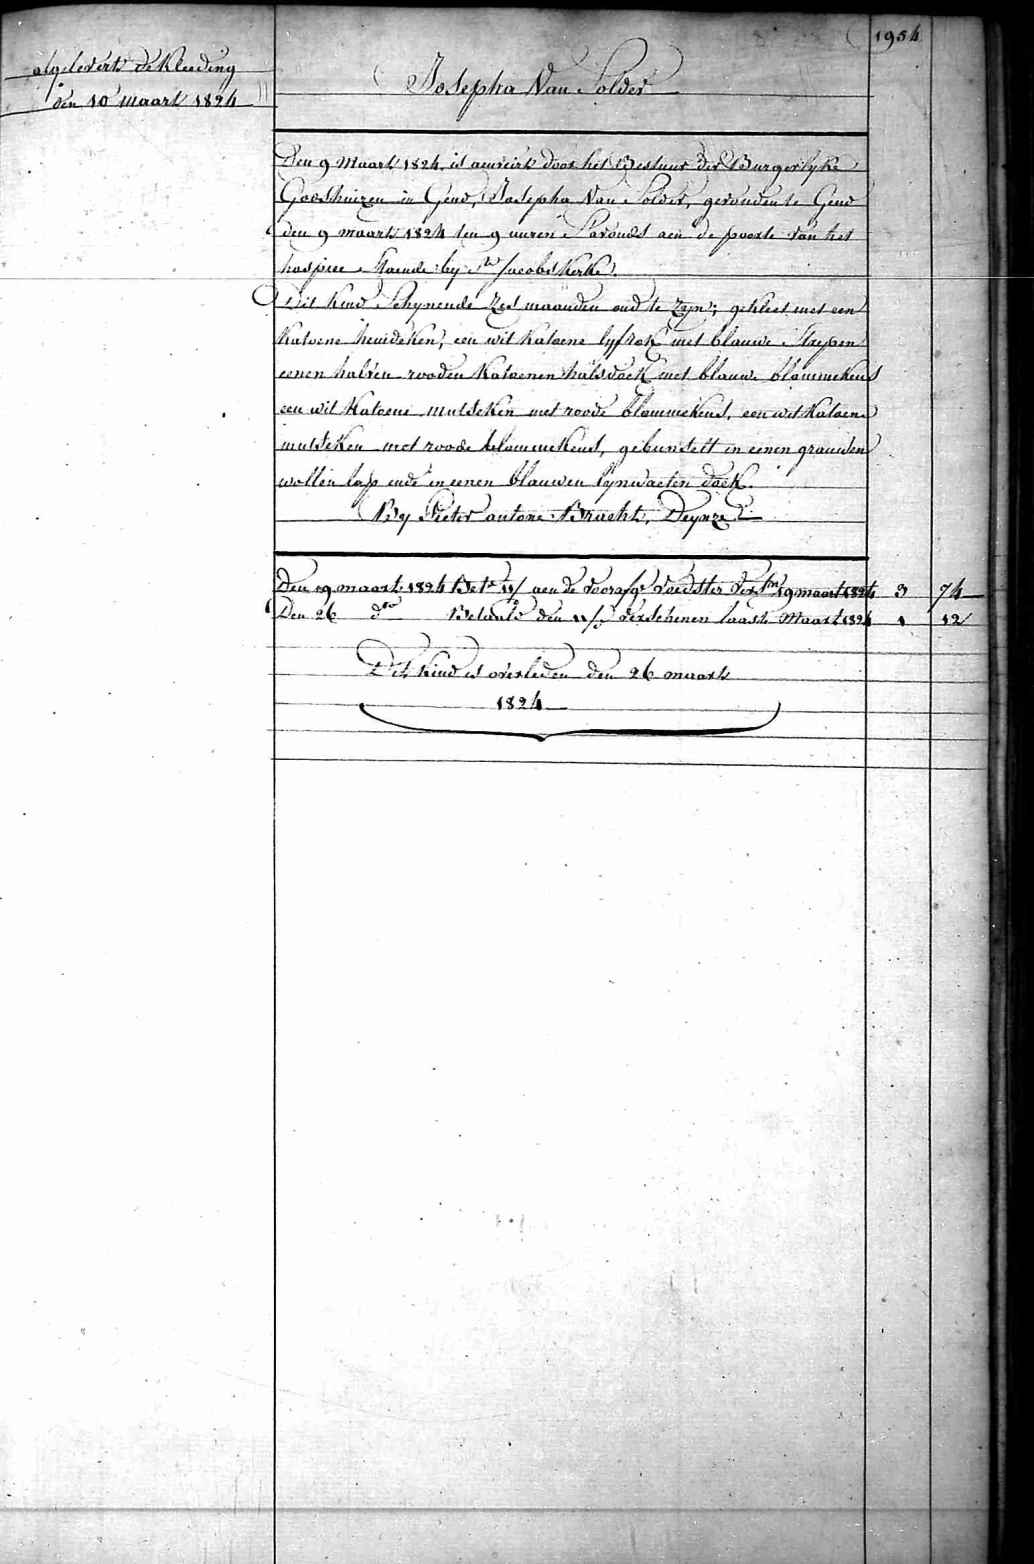 1954
afgelevert de Kleeding
den 10 maart 1824
Josepha Van Polder
Den 9 Maart 1824. is aenveirt door het Bestuur der Burgerlyke
Godshuizen in Gend, Josepha Van Polder, gevonden te Gend
den 9 maart 1824 ten 9 uuren S'avonds aen de poorte van het
hospice staende by Ste Jacobs Kerke.
Dit kind Schynende Zes maanden oud te zyn; gekleet met een
Katoene hemdeken, een wit Katoene lyfrok met blauwe Strepen
eenen halven rooden Katoenen halsdoek met blauwe blommekens
een wit Katoene mutseken met roode blommekens, een wit Katoene
mutseken met roode blommekens, gebunselt in eenen grauwen
wollen lap ende in eenen blauwen lynwaeten doek.
By Pieter antone Bracht, Deynze
Den 19 maart 1824 Bet. aen de voorafge voedster 19 maart 1824 3 74
Den 26 do Betaald den verschenen laaste Maart 1824 1 12
Dit kind is overleden den 26 maart
1824